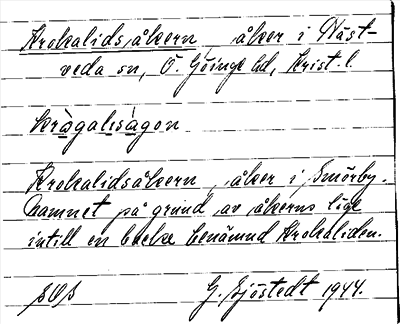 Krokalidsåkern, åker i Näst-
veda sn, Ö. Göinge hd, Krist. l.
kràgalisàgon
Krokalidsåkern, åker i Smörby.
Namnet på grund av åkerns läge
intill en backe benämnd Krokaliden.
SOS G. Sjöstedt 1944.